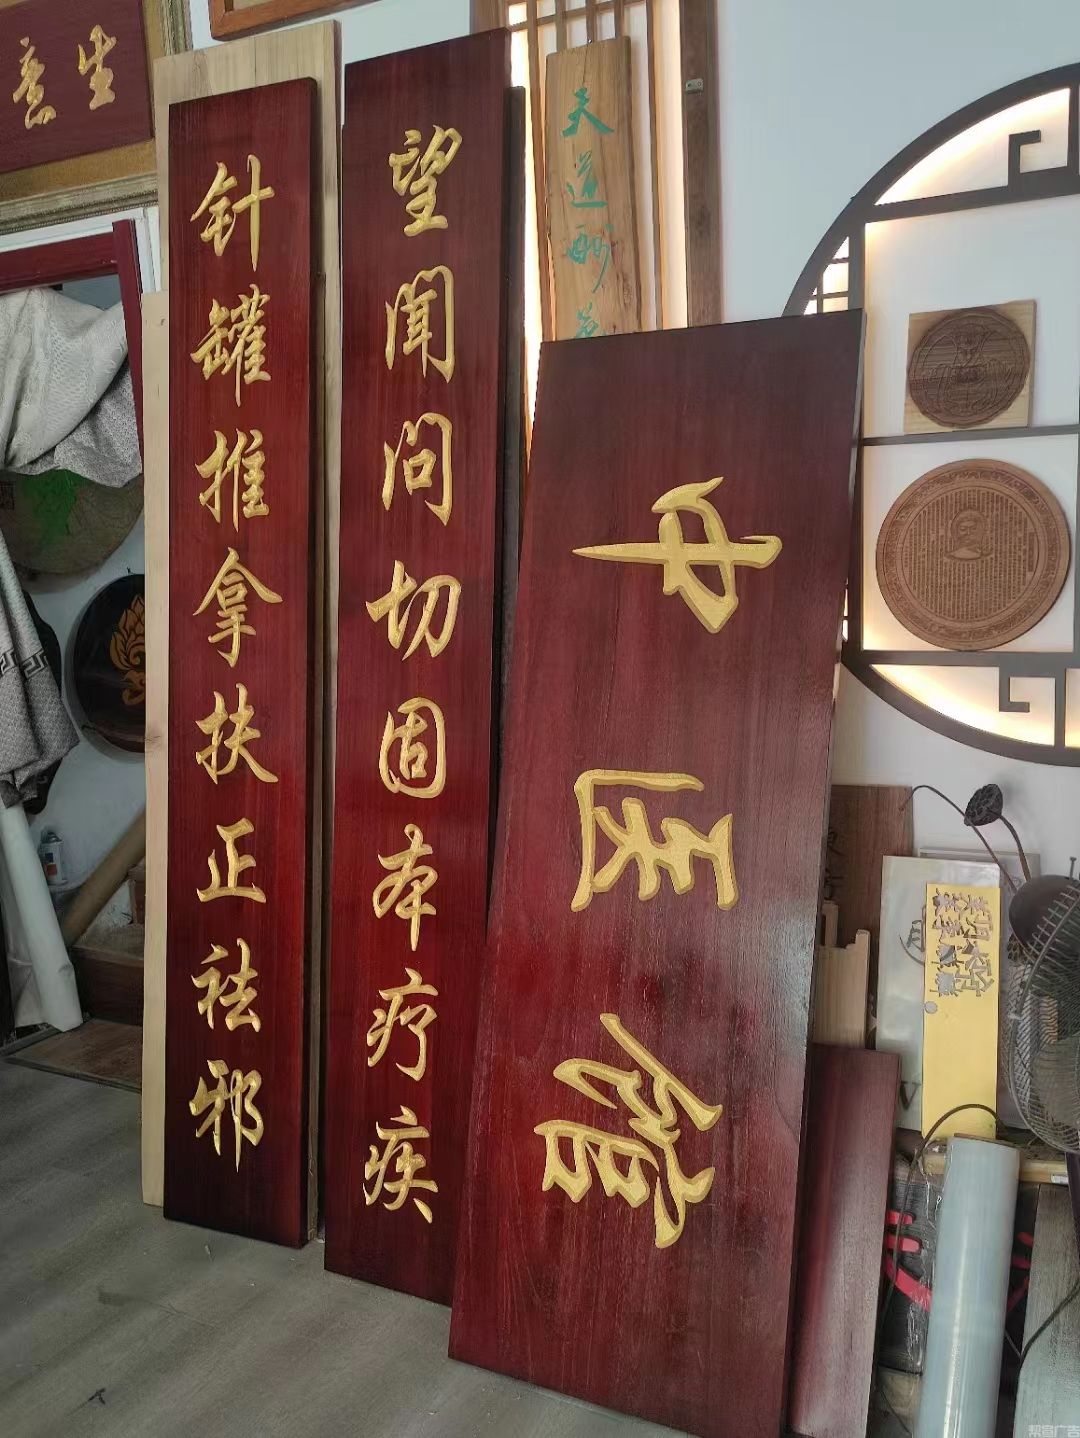 望闻问切固本疗疾
针罐推拿扶正祛邪
中医馆
天道酬
生意